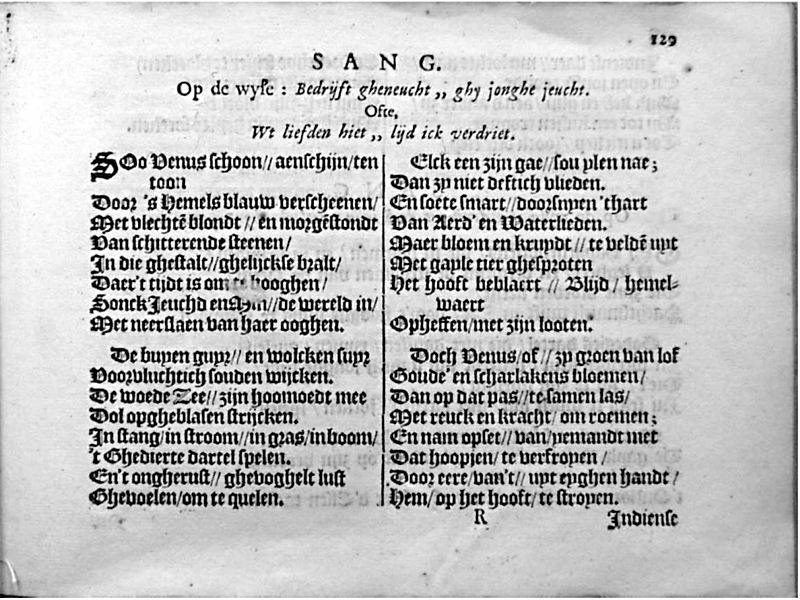 129
SANG.
Op de wyse : Bedrijft gheneucht,, ghy jonghe jeucht.
Ofte,
Wt liefden siet,, lijd ick verdriet.
SOo Venus schoon// aenschijn/ten
toon
Door 's Hemels blauw verscheenen/
Met vlechtē blondt // en morgēstondt
Van schitterende steenen/
In die ghestalt//ghelijckse bralt/
Daer't tijdt is om te hooghen/
Sonck Jeuchd en //de wereld in/
Met neerslaen van haer ooghen.
De buyen guyr// en wolcken suyr
Voorvluchtich souden wijcken.
De woede Zee// zijn hoomoedt mee
Dol opgheblasen strijcken.
In stang/in stroom//in gras/in boom/
't Ghedierte dartel spelen.
En't ongherust// ghevoghelt lust
Ghevoelen/om te quelen.
Elck een zijn gae//sou plen nae;
Dan zy niet deftich vlieden.
En soete smart//doorsnyen 'thart
Van Aerd' en Waterlieden.
Maer bloem en kruydt // te veldē uyt
Met gayle tier ghesproten
Het hooft beblaert // Blijd / hemel-
waert
Opheffen/met zijn looten.
Doch Venus/of// zy groen van lof
Goude' en scharlakens bloemen/
Dan op dat pas//te samen las/
Met reuck en kracht/ om roemen;
En nam opset// van/yemandt met
Dat hoopjen/te verfroyen/
Door eere/van't// uyt eyghen handt/
Hem/op het hooft/te stroyen.
R
Indiense